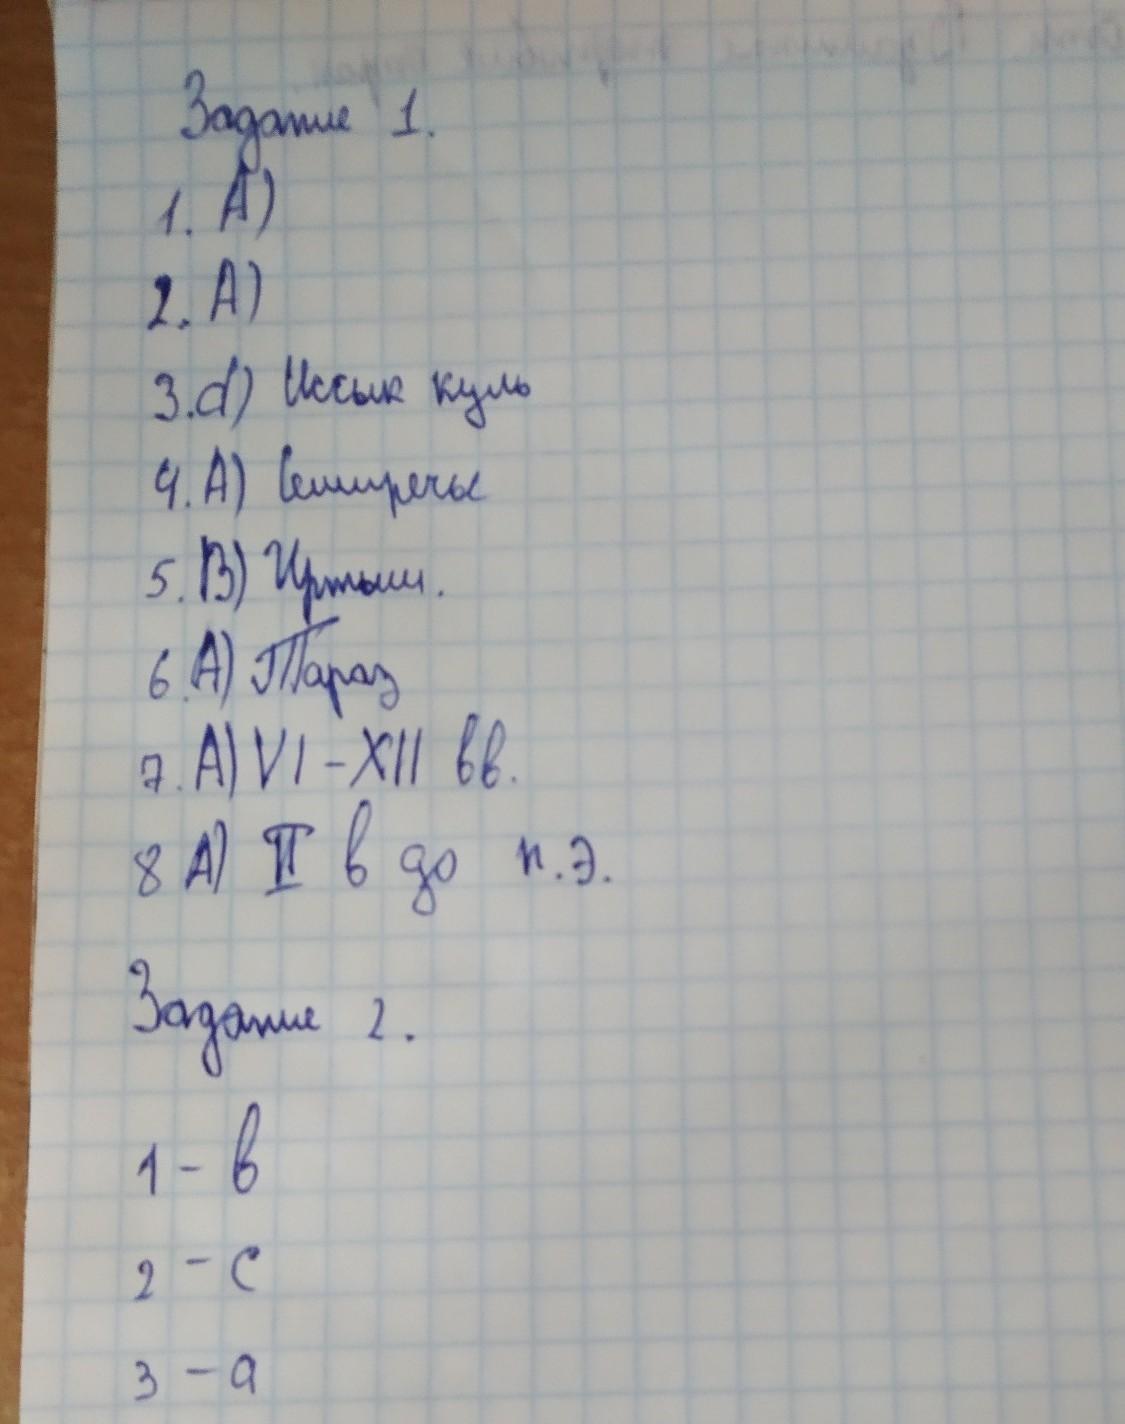 Задание 1.
1. А)
2. А)
3. d) Иссык куль
4. А) Семиречье
5. В) Иртыш.
6. А) Тараз
7. А) VI - XII вв.
8 А) II в до н.э.
Задание 2.
1 - в
2 - с
3 - а